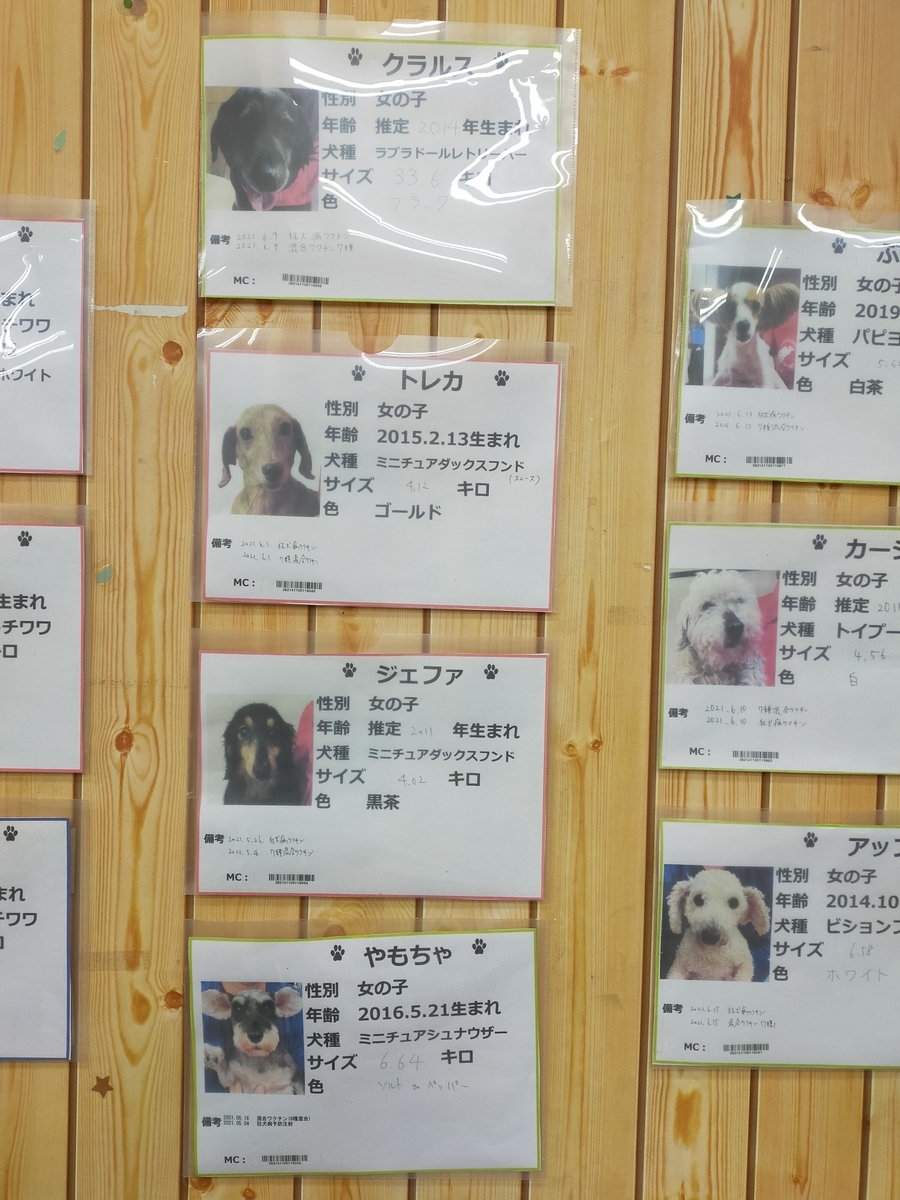 まれ
チワワ
ホワイト
生まれ
チワワ
ロ
まれ
チワワ
クラルス
性別 女の子
年齢 推定 2014 年生まれ
犬種 ラブラドールレトリーバー
サイズ 33.6 キロ
色 ブラック
備考 2021 6.9 狂犬病ワクチン
2021 6.9 混合ワクチン7種
MC：
トレカ
性別 女の子
年齢 2015.2.13生まれ
犬種 ミニチュアダックスフンド
(スムース)
サイズ 4.12 キロ
色 ゴールド
備考 2021 6.1. 狂犬病ワクチン
2021 6.1 7種混合ワクチン
MC：
ジェファ
性別 女の子
年齢 推定 2011 年生まれ
犬種 ミニチュアダックスフンド
サイズ 4.02 キロ
色 黒茶
備考 2021.5.26 狂犬病ワクチン
7種混合ワクチン
MC：
やもちゃ
性別 女の子
年齢 2016.5.21生まれ
犬種 ミニチュアシュナウザー
サイズ 6.64 キロ
色 ソルト&ペッパー
備考 2021.05.18 混合ワクチン(6種混合)
2021.05.04 狂犬病予防注射
MC：
性別 女の子
年齢 2019
犬種 パピヨ
サイズ
色 白茶
備考 2021 6.13 狂犬病ワクチン
2021 6.13 7種混合ワクチン
MC：
カーシ
性別 女の子
年齢 推定 201
犬種 トイプー
サイズ 4.56
色 白
備考 2021.6.10 7種混合ワクチン
2021.6.10 狂犬病ワクチン
MC：
アップ
性別 女の子
年齢 2014.10
犬種 ビションフ
サイズ 6.58
色 ホワイト
備考 2021.6.15 狂犬病ワクチン
2021.6.15 混合ワクチン(7種)
MC：